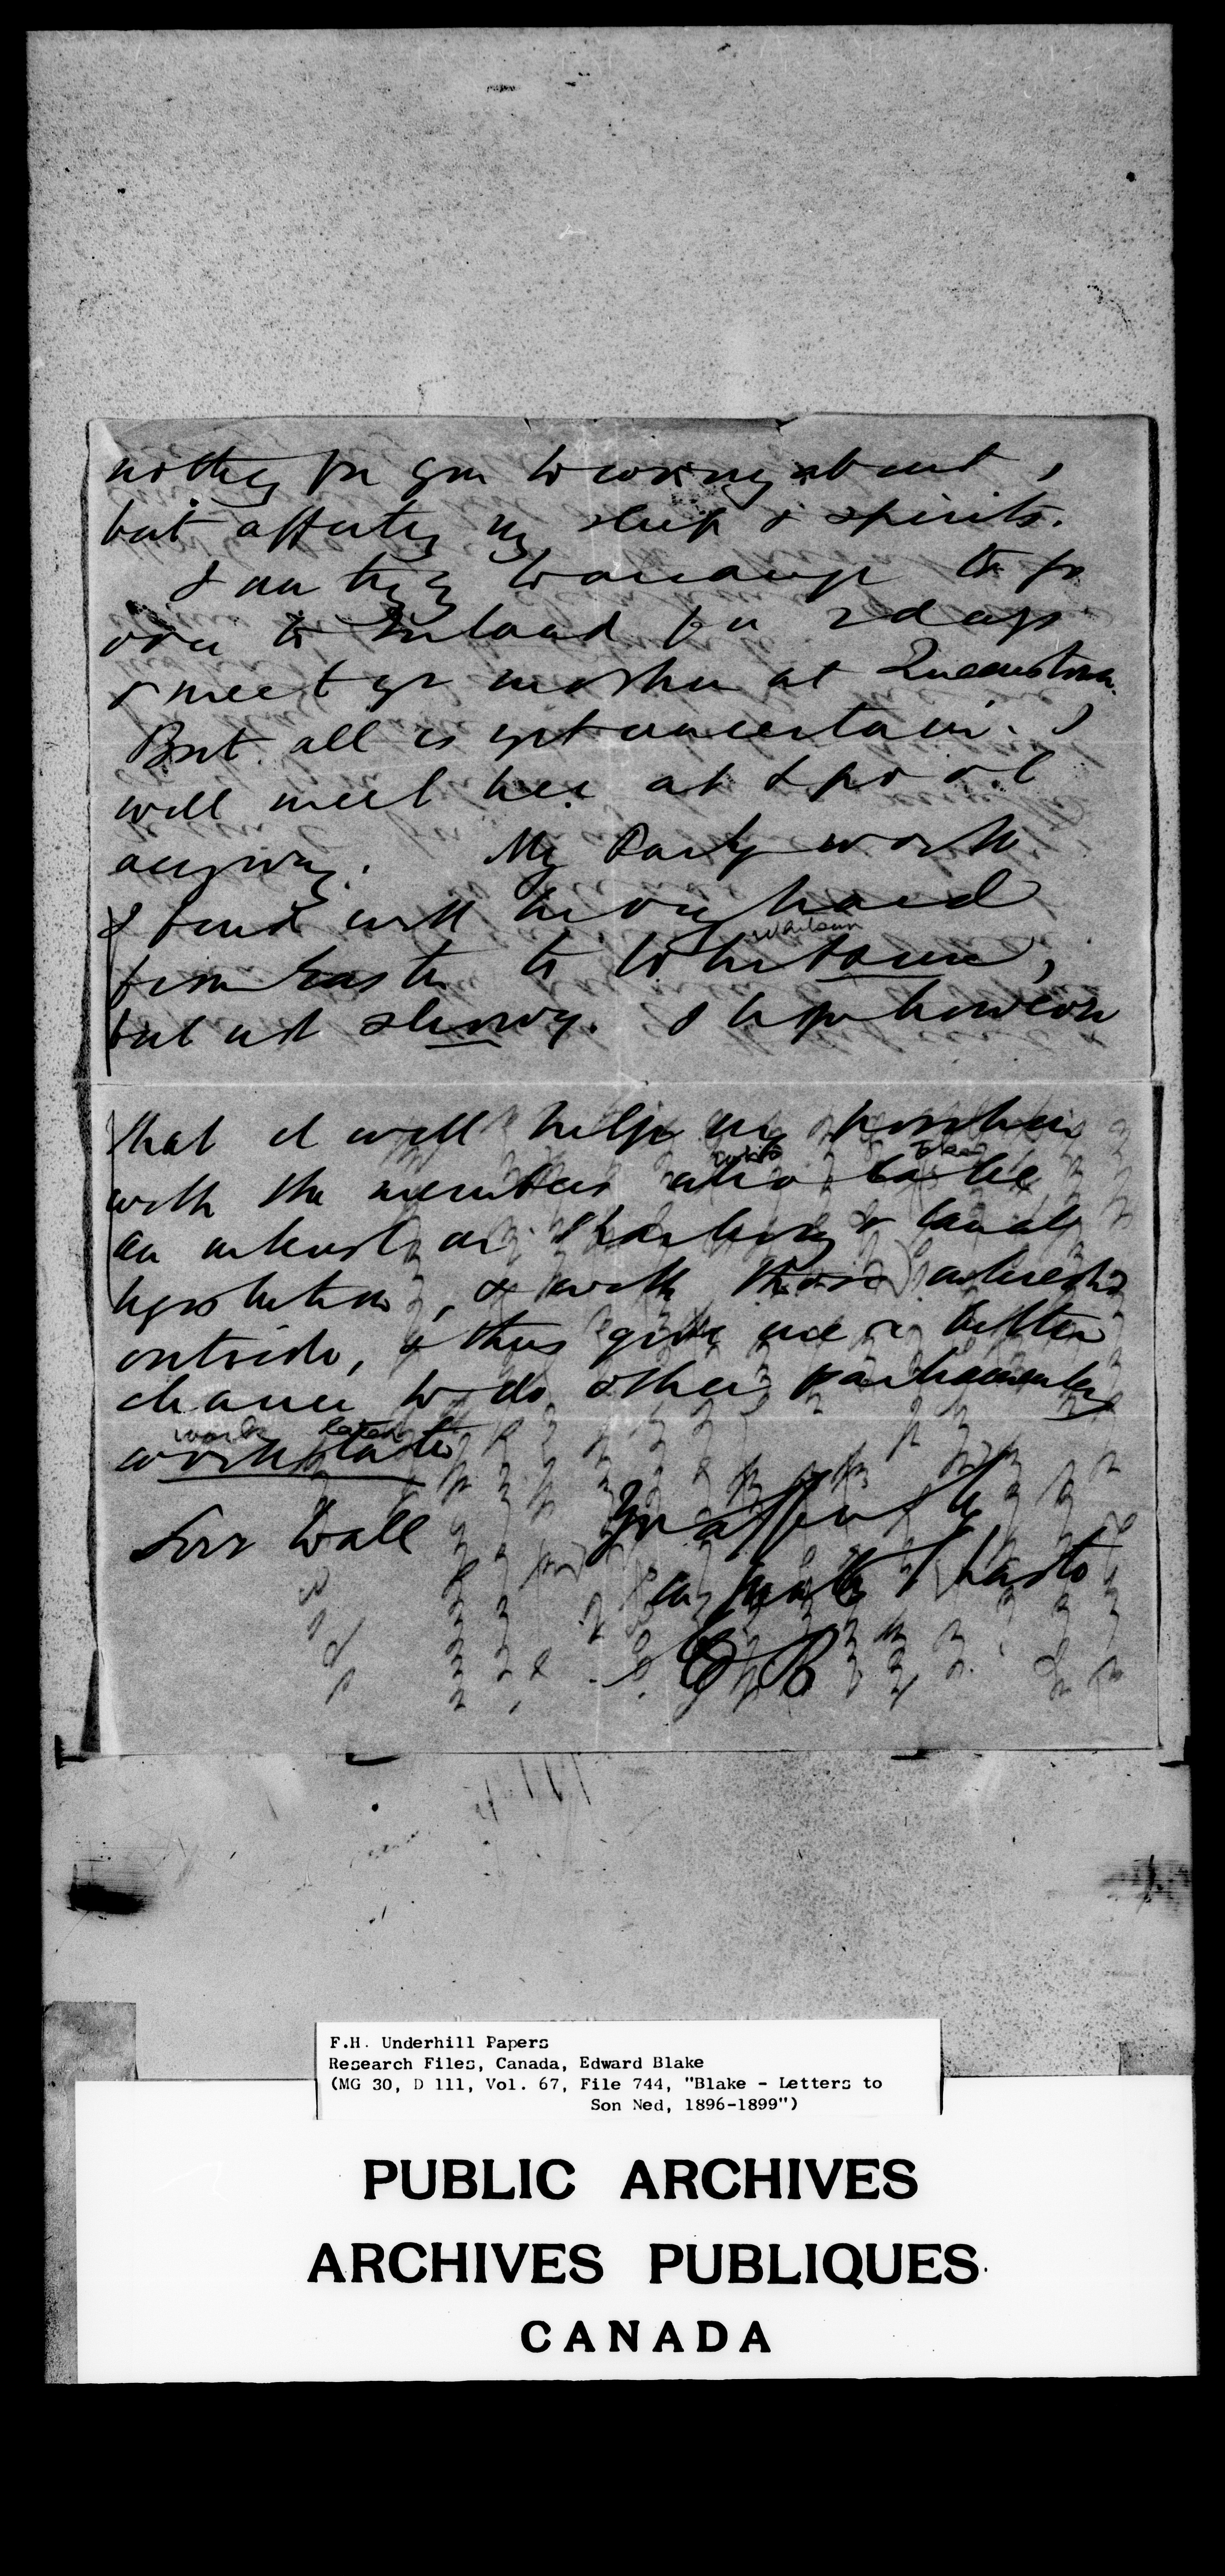 nothing for you to worry about,
but affecting my sleep & spirits.
I am trying to arrange to go
over to Ireland for 2 days
& meet yr mother at Queenstown.
But all is yet uncertain. I
will meet her at Lpool
anyway. My Party work
I find will be very hard
Whitsun
from Easter to Whitsun,
but not showy. I hope however
that it will help my position
who take
with the members who take
an interest in & 
legislation, & with those interested
outside, & thus give me a better
chance to do other parliamentary
work later
work later
Love to all Yr affecte
in great haste
E B
F.H. Underhill Papers
Research Files, Canada, Edward Blake
(MG 30, D 111, Vol. 67, File 744, "Blake - Letters to
Son Ned, 1896-1899")
PUBLIC ARCHIVES
ARCHIVES PUBLIQUES
CANADA